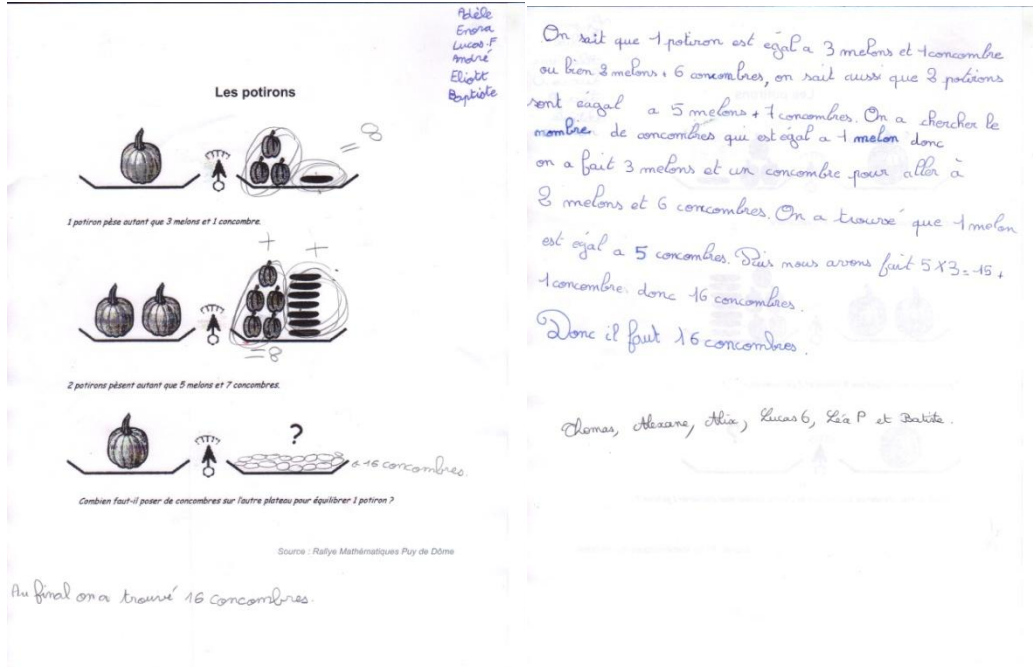 Adèle
Enora
Lucas.F
André
Eliott
Baptiste
Les potirons
= 8
1 potiron pèse autant que 3 melons et 1 concombre.
+ +
= 8
2 potirons pèsent autant que 5 melons et 7 concombres.
?
16 concombres.
Combien faut-il poser de concombres sur l'autre plateau pour équilibrer 1 potiron ?
Source : Rallye Mathématiques Puy de Dôme
Au final on a trouvé 16 concombres.
On sait que 1 potiron est égal a 3 melons et 1 concombre
ou bien 2 melons + 6 concombres, on sait aussi que 2 potirons
sont éagal a 5 melons + 7 concombres. On a chercher le
nombre de concombres qui est égal a 1 melon donc
on a fait 3 melons et un concombre pour aller à
2 melons et 6 concombres. On a trouvé que 1 melon
est égal a 5 concombres. Puis nous avons fait 5X3=15+
1 concombre donc 16 concombres.
Donc il faut 16 concombres.
Thomas, Alexane, Alix, Lucas G, Léa P et Batiste.